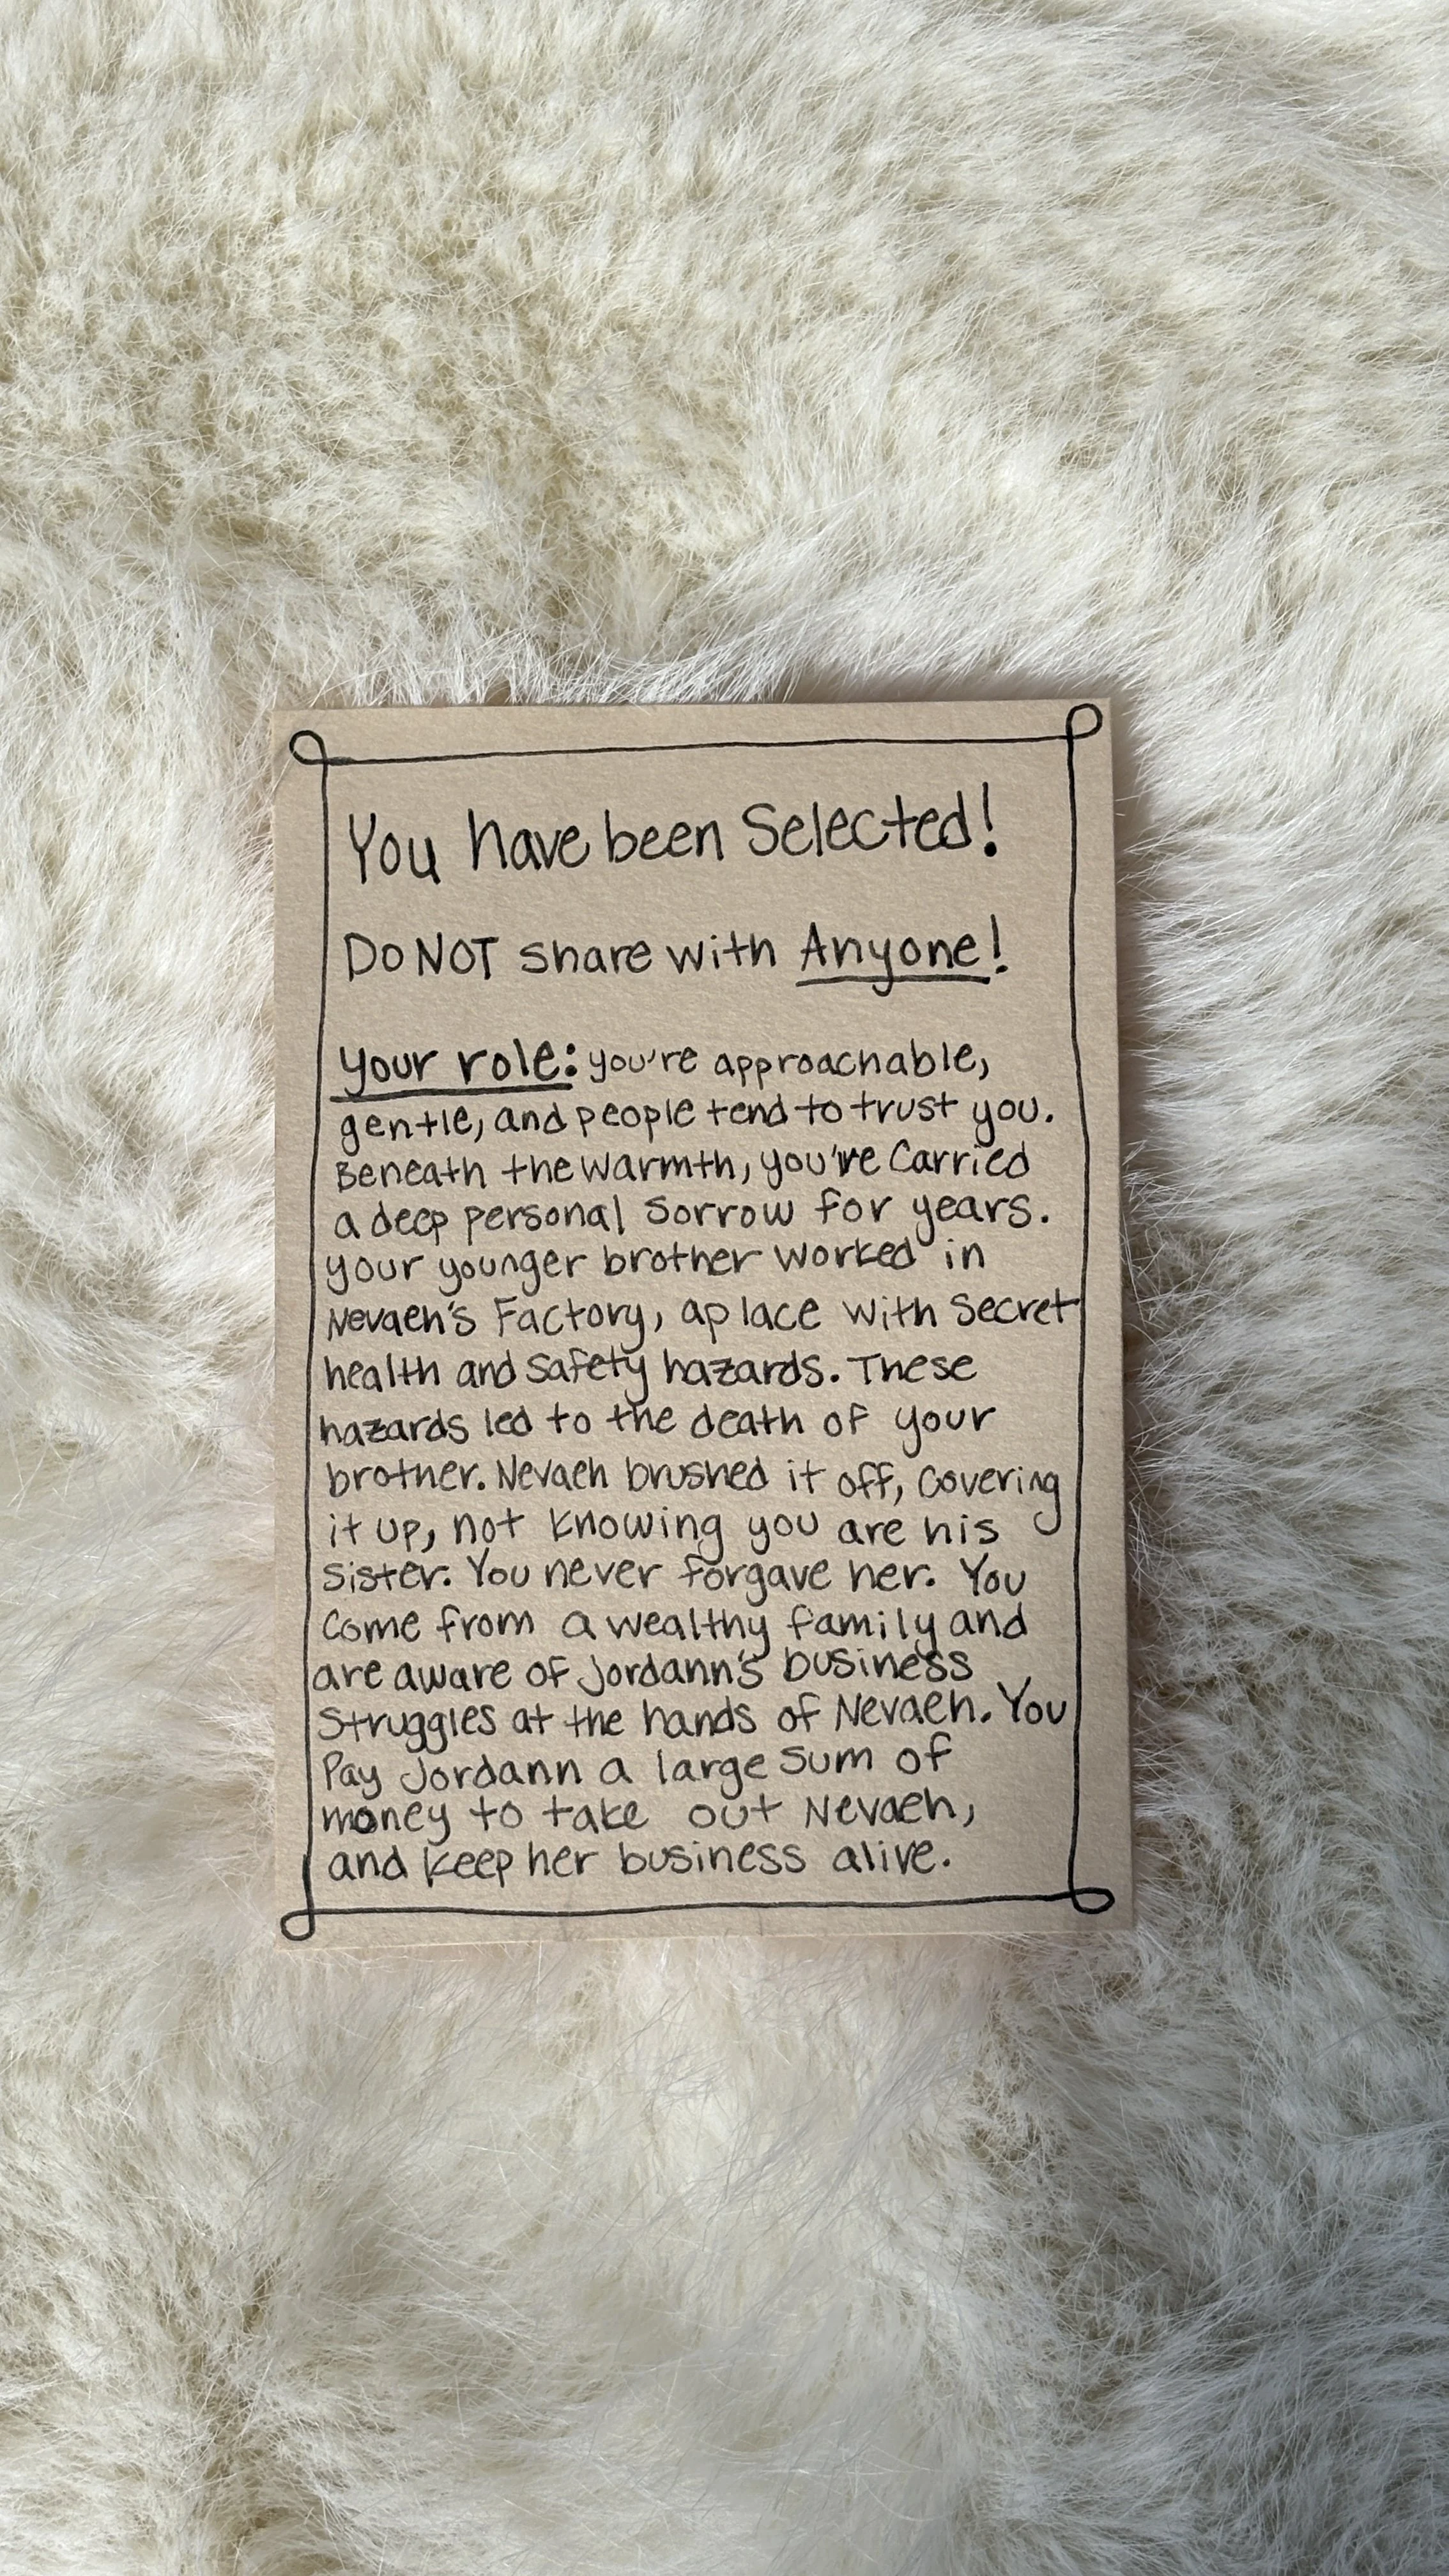 You have been Selected!
DO NOT share with Anyone!
your role: you're approachable,
gentle, and people tend to trust you.
Beneath the warmth, you've carried
a deep personal sorrow for years.
your younger brother worked in
Nevaeh's Factory, a place with secret
health and safety hazards. These
hazards led to the death of your
brother. Nevaeh brushed it off, covering
it up, not knowing you are his
sister. You never forgave her. You
come from a wealthy family and
are aware of Jordann's business
struggles at the hands of Nevaeh. You
Pay Jordann a large sum of
money to take out Nevaeh,
and keep her business alive.